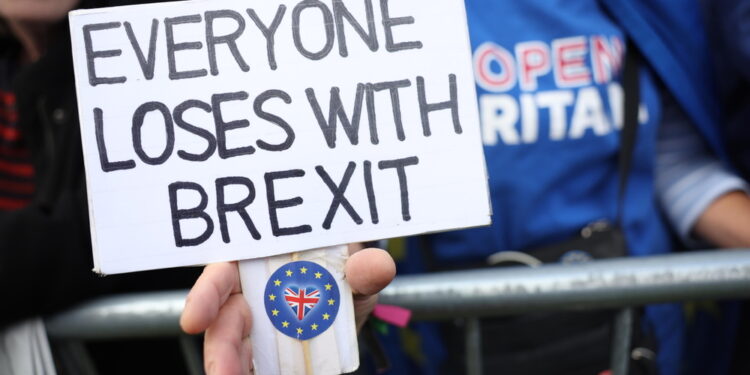 EVERYONE
LOSES WITH
BREXIT
OPEN